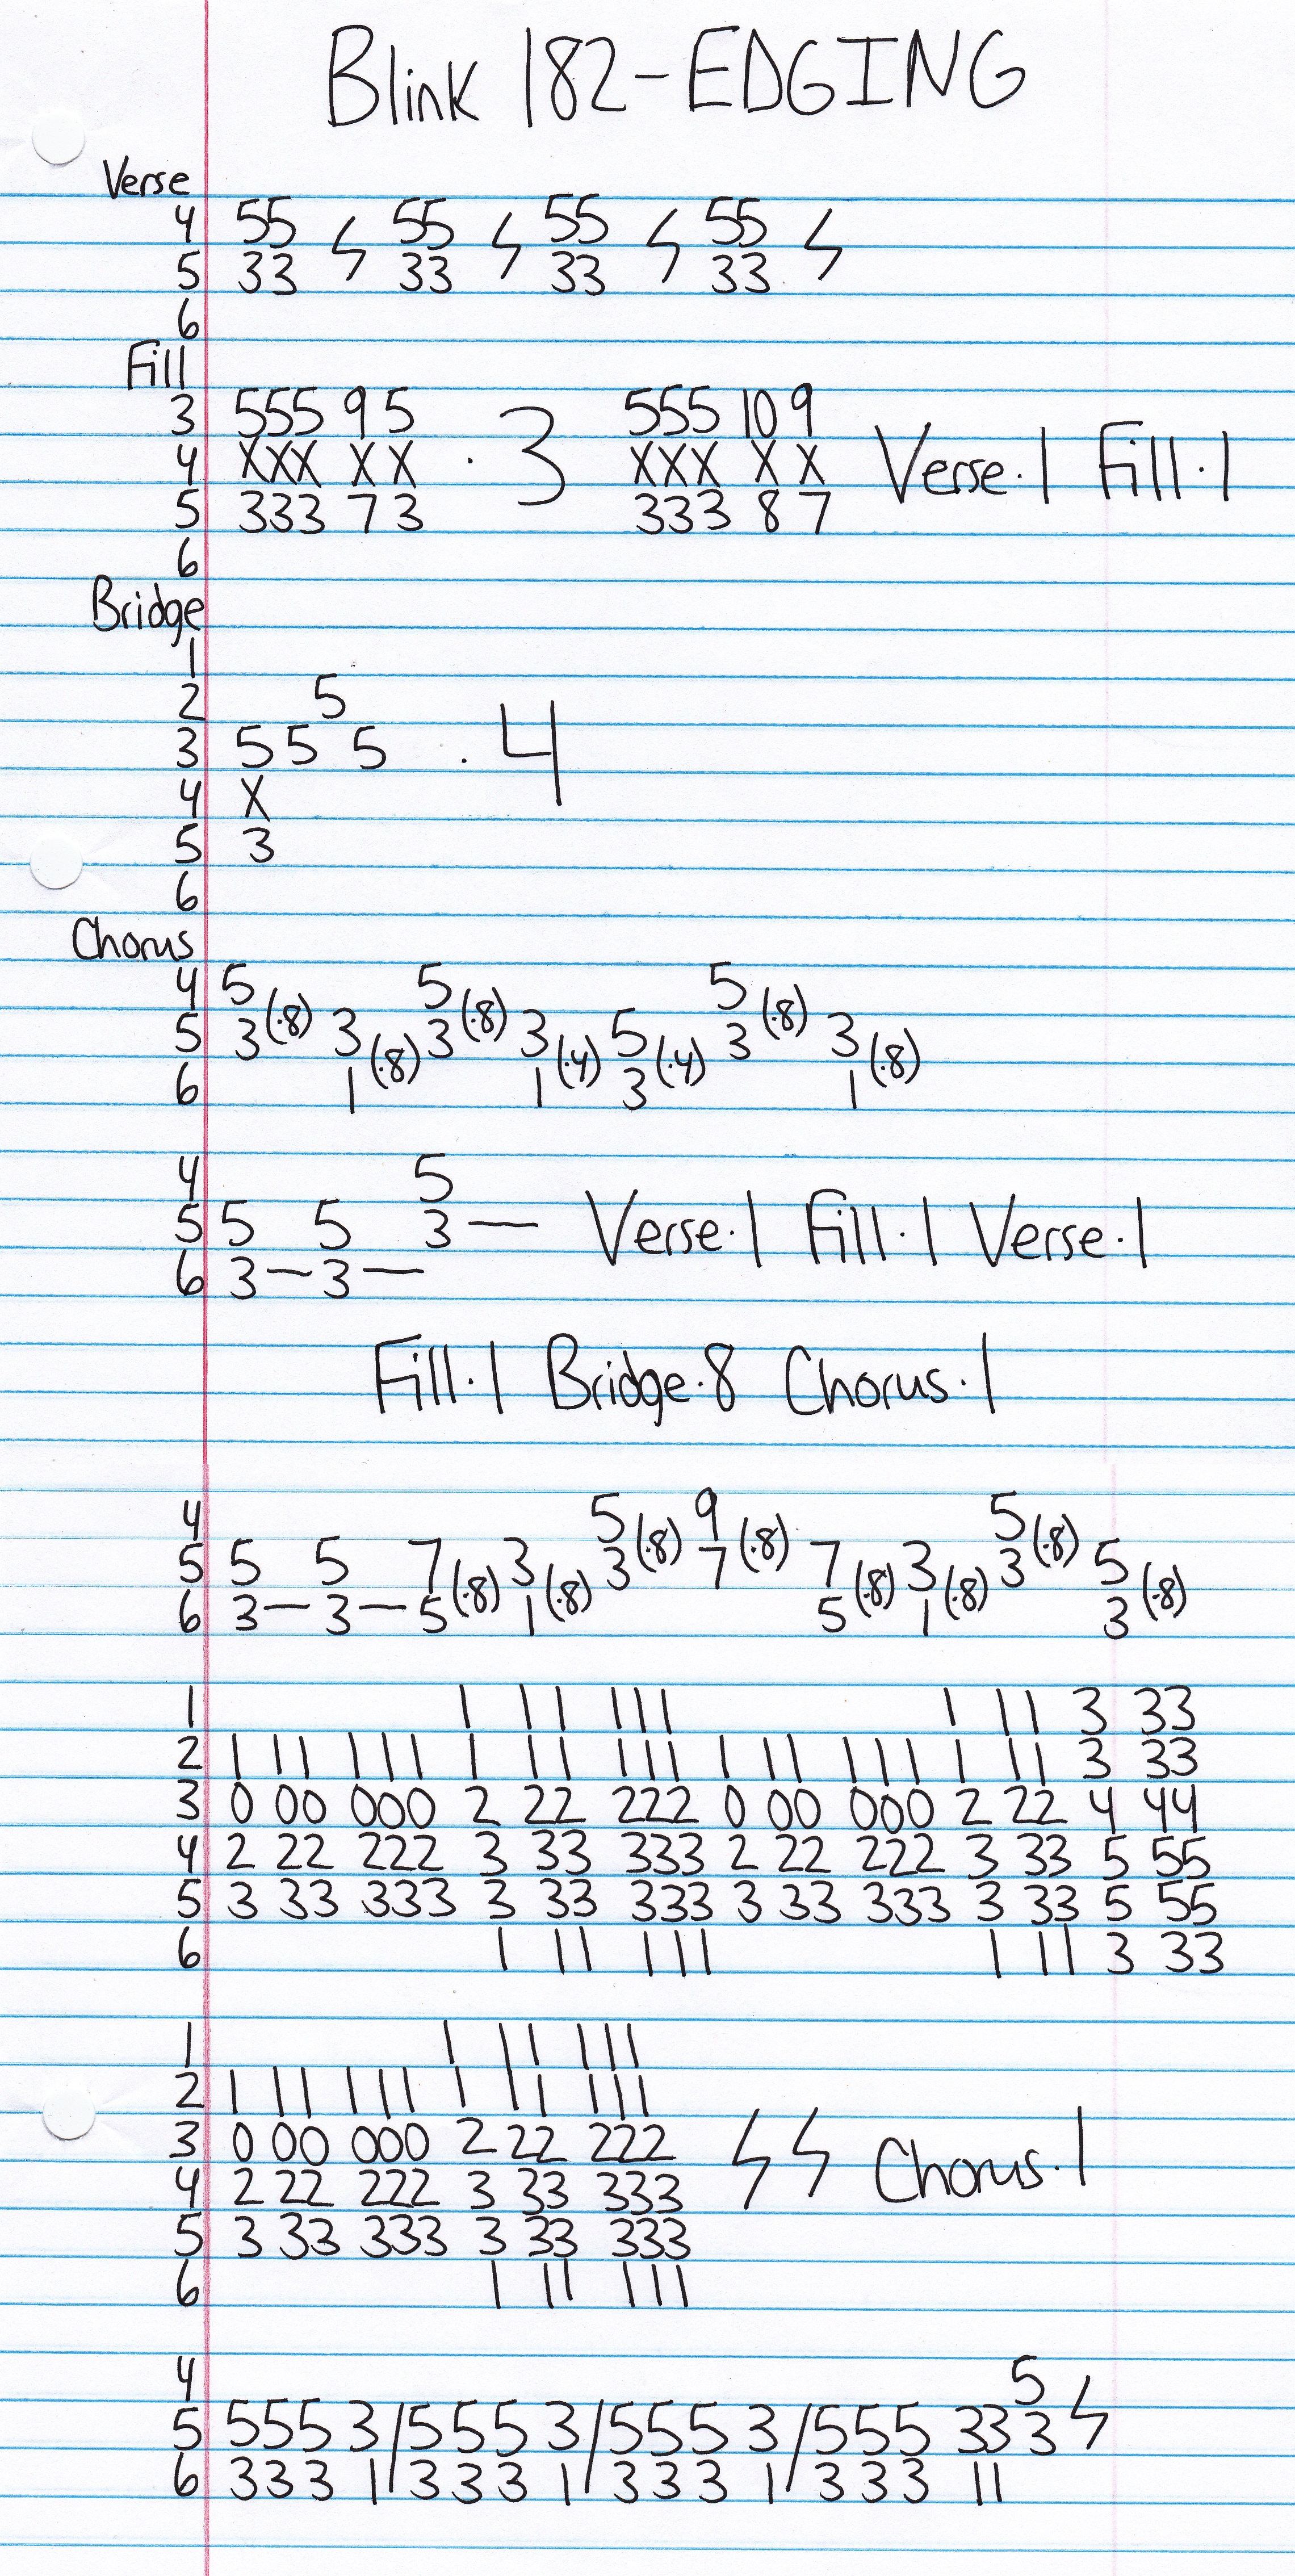 Blink 182-EDGING
Verse
4 55 ϟ 55 ϟ 55 ϟ 55 ϟ
5 33 33 33 33
6
Fill
3 555 9 5 555 10 9
4 XXX X X · 3 XXX X X Verse·1 Fill·1
5 333 7 3 333 8 7
6
Bridge
1
2 5
3 5 5 5 · 4
4 X
5 3
6
Chorus
4 5 5 5
5 3(·8) 3 3(·8) 3 5 3(·8) 3
6 1(·8) 1(·4) 3(·4) 1(·8)
4 5
5 5 5 3— Verse·1 Fill·1 Verse·1
6 3—3—
Fill·1 Bridge·8 Chorus·1
4 5 9 5
5 5 5 7 3 3(·8) 7(·8) 7 3 3(·8) 5
6 3—3—5(·8) 1(·8) 5(·8) 1(·8) 3(·8)
1 1 11 111 1 11 3 33
2 1 11 111 1 11 111 1 11 111 1 11 3 33
3 0 00 000 2 22 222 0 00 000 2 22 4 44
4 2 22 222 3 33 333 2 22 222 3 33 5 55
5 3 33 333 3 33 333 3 33 333 3 33 5 55
6 1 11 111 1 11 3 33
1 1 11 111
2 1 11 111 1 11 111
3 0 00 000 2 22 222 ϟ ϟ Chorus·1
4 2 22 222 3 33 333
5 3 33 333 3 33 333
6 1 11 111
4 5 ϟ
5 555 3/555 3/555 3/555 33 3
6 333 1/333 1/333 1/333 11